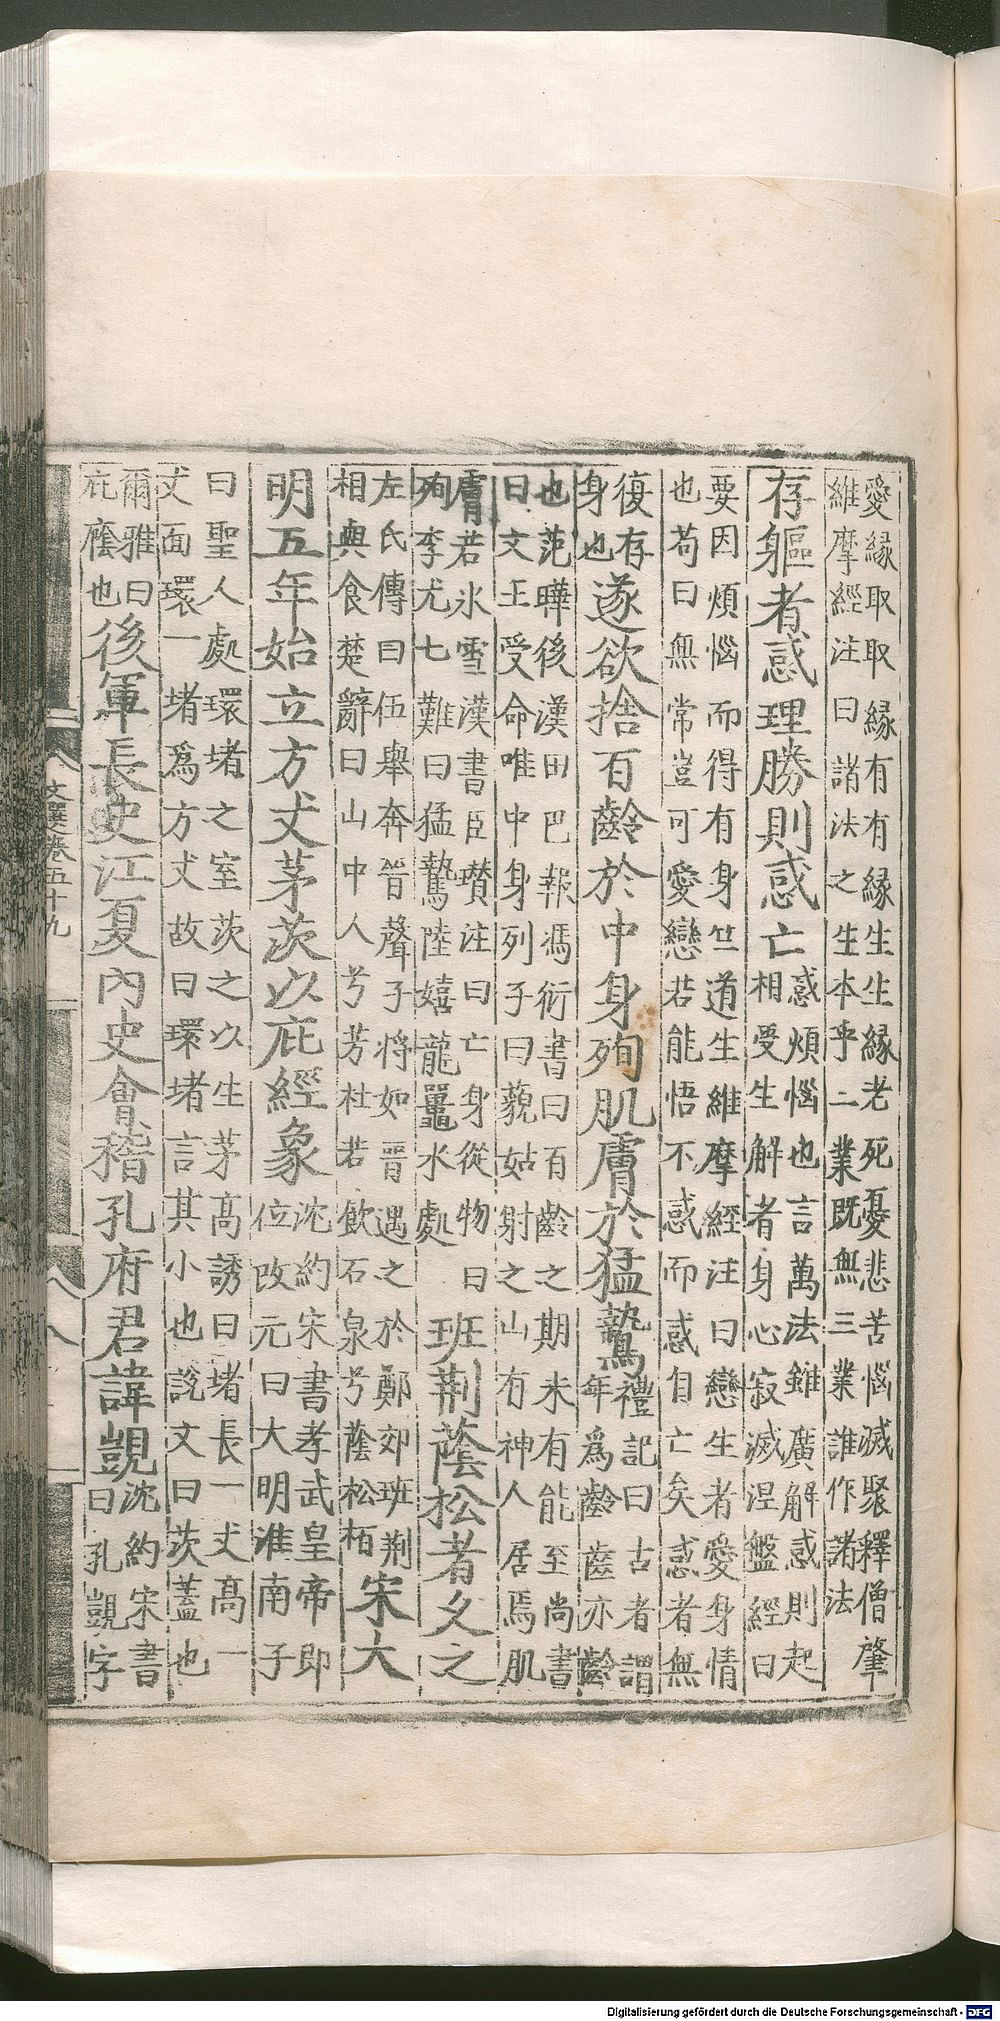 愛緣取取緣有有緣生生緣老死憂悲苦惱滅聚釋僧肇
維摩經注曰諸法之生本乎二業既無三業誰作諸法
存軀者惑理勝則惑亡
惑煩惱也言萬法雖廣解惑則起
相受生解者身心寂滅涅盤經曰
要因煩惱而得有身竺道生維摩經注曰戀生者愛身情
也苟曰無常豈可愛戀若能悟不惑而惑自亡矣惑者無
復存
身也
遂欲捨百齡於中身殉肌膚於猛鷙
禮記曰古者謂
年為齡齒亦齡
也范曄後漢田巴報馮衍書曰百齡之期未有能至尚書
曰文王受命唯中身列子曰藐姑射之山有神人居焉肌
膚若冰雪漢書臣瓚注曰亡身從物曰
殉李尤七難曰猛鷙陸嬉龍鼉水處
班荆蔭松者久之
左氏傳曰伍舉奔晉聲子將如晉遇之於鄭郊班荆
相與食楚辭曰山中人兮芳杜若飲石泉兮蔭松栢
宋大
明五年始立方丈茅茨以庇經象
沈約宋書孝武皇帝即
位改元曰大明淮南子
曰聖人處環堵之室茨之以生茅高誘曰堵長一丈高一
丈面環一堵爲方丈故曰環堵言其小也說文曰茨蓋也
爾雅曰
庇廕也
後軍長史江夏內史會稽孔府君諱覬
沈約宋書
曰孔覬字
文選卷五十九
八
Digitalisierung gefördert durch die Deutsche Forschungsgemeinschaft - DFG